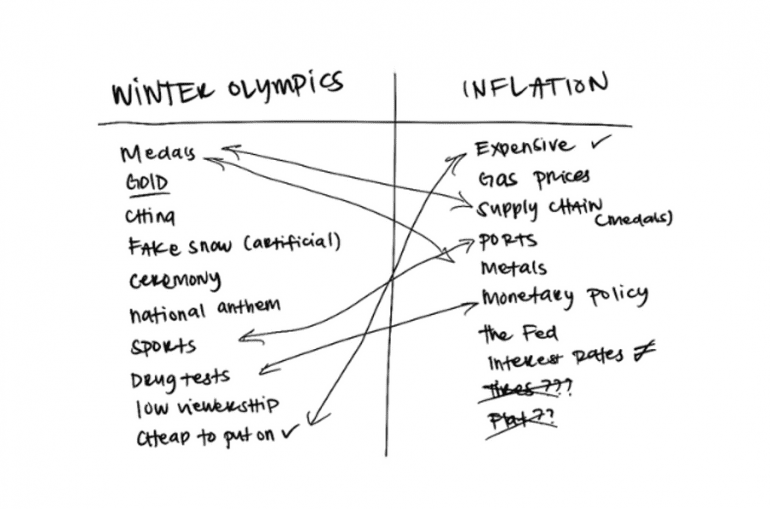 WINTER OLYMPICS
Medals
GOLD
China
Fake snow (artificial)
ceremony
national anthem
sports
Drug tests
low viewership
Cheap to put on ✓
INFLATION
Expensive ✓
Gas prices
Supply CHAIN
(medals)
PORTS
Metals
Monetary policy
the Fed
Interest Rates ≠